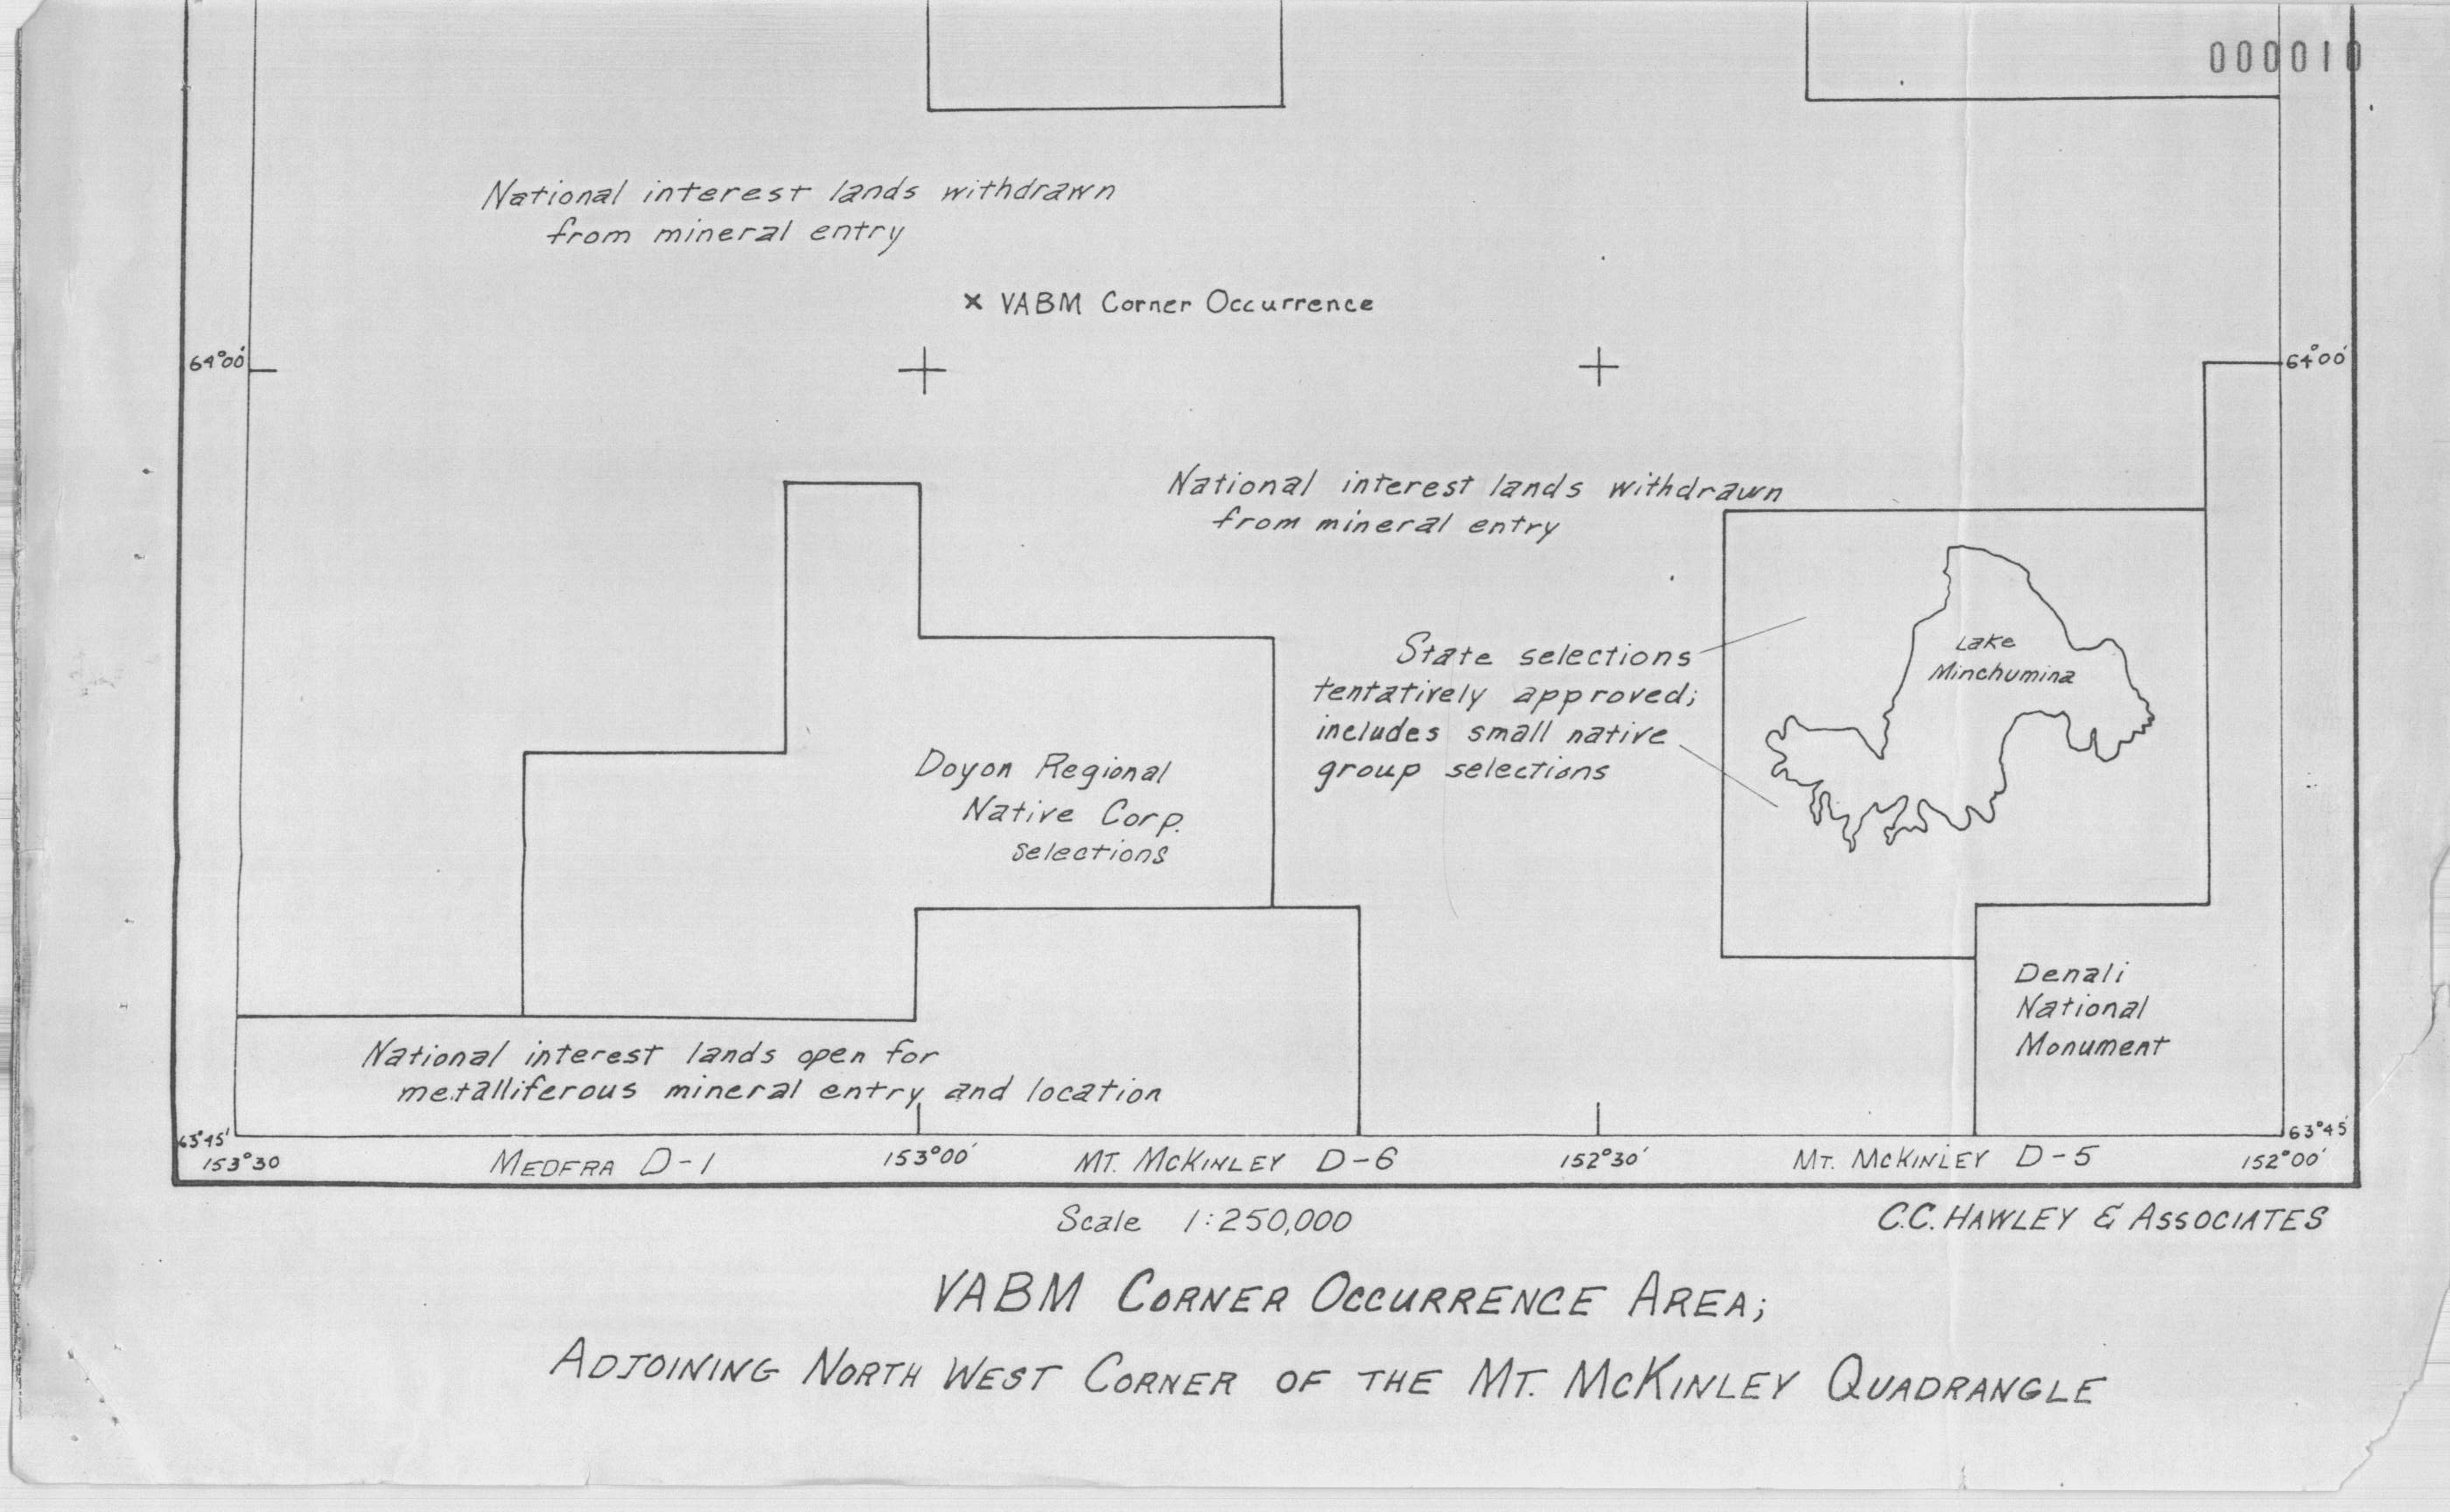 000010
National interest lands withdrawn
from mineral entry
x VABM Corner Occurrence
64°00'
64°00'
National interest lands withdrawn
from mineral entry
State selections
tentatively approved;
includes small native
group selections
Lake
Minchumina
Doyon Regional
Native Corp.
selections
Denali
National
Monument
National interest lands open for
metalliferous mineral entry and location
63°45'
63°45'
153°30
MEDFRA D-1
153°00'
MT. MCKINLEY D-6
152°30'
MT. MCKINLEY D-5
152°00'
Scale 1:250,000
C.C. HAWLEY & ASSOCIATES
VABM CORNER OCCURRENCE AREA;
ADJOINING NORTH WEST CORNER OF THE MT. MCKINLEY QUADRANGLE